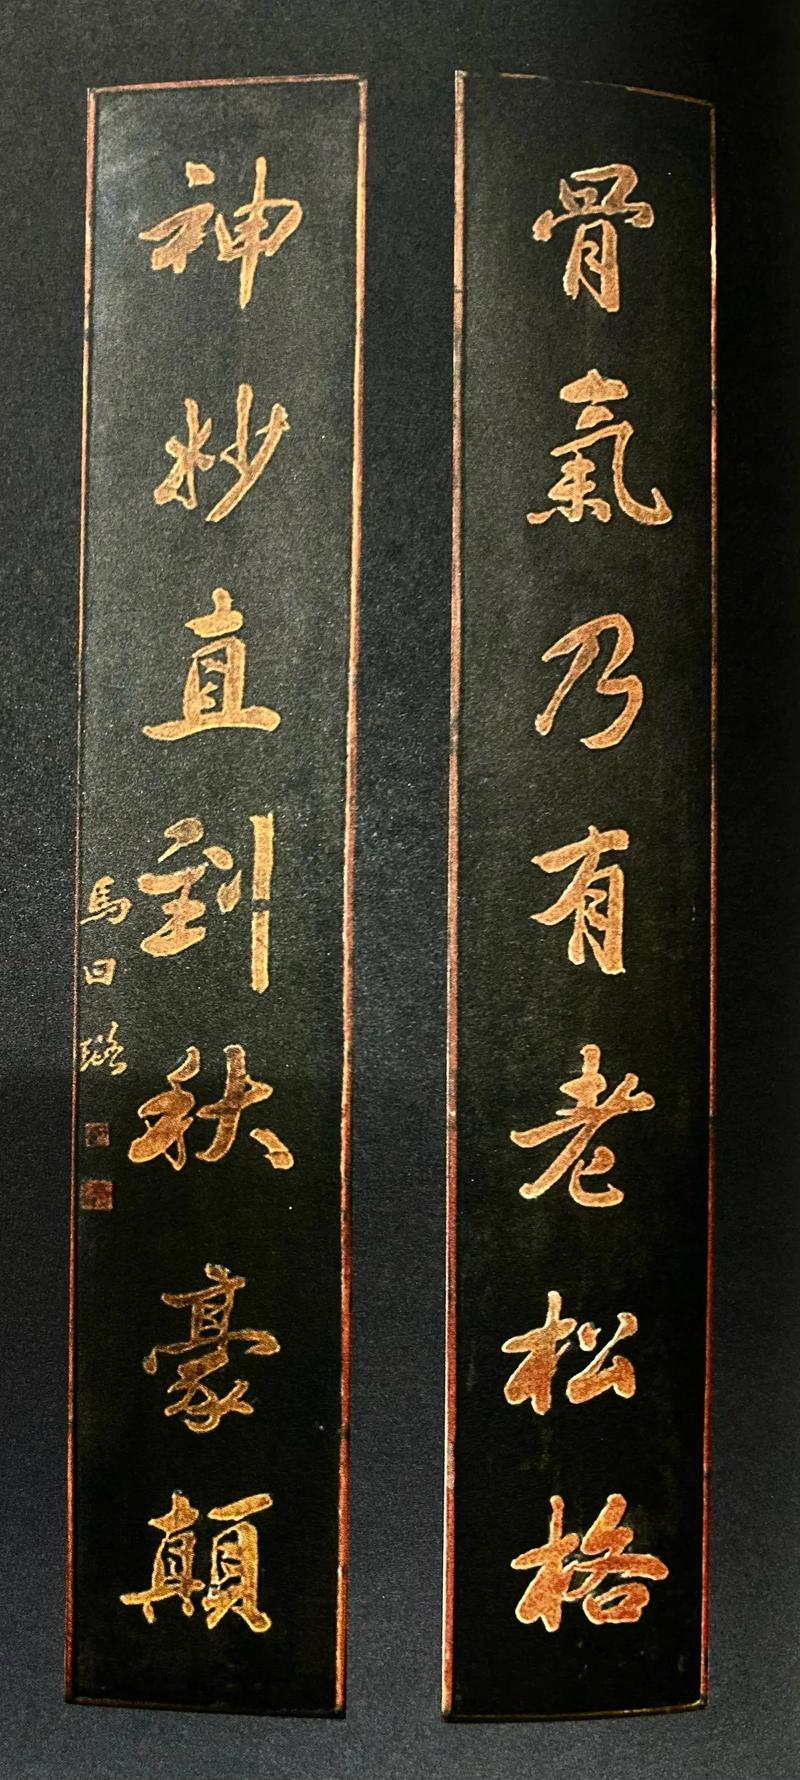 骨氣乃有老松格
神妙直到秋豪顛
馬曰璐